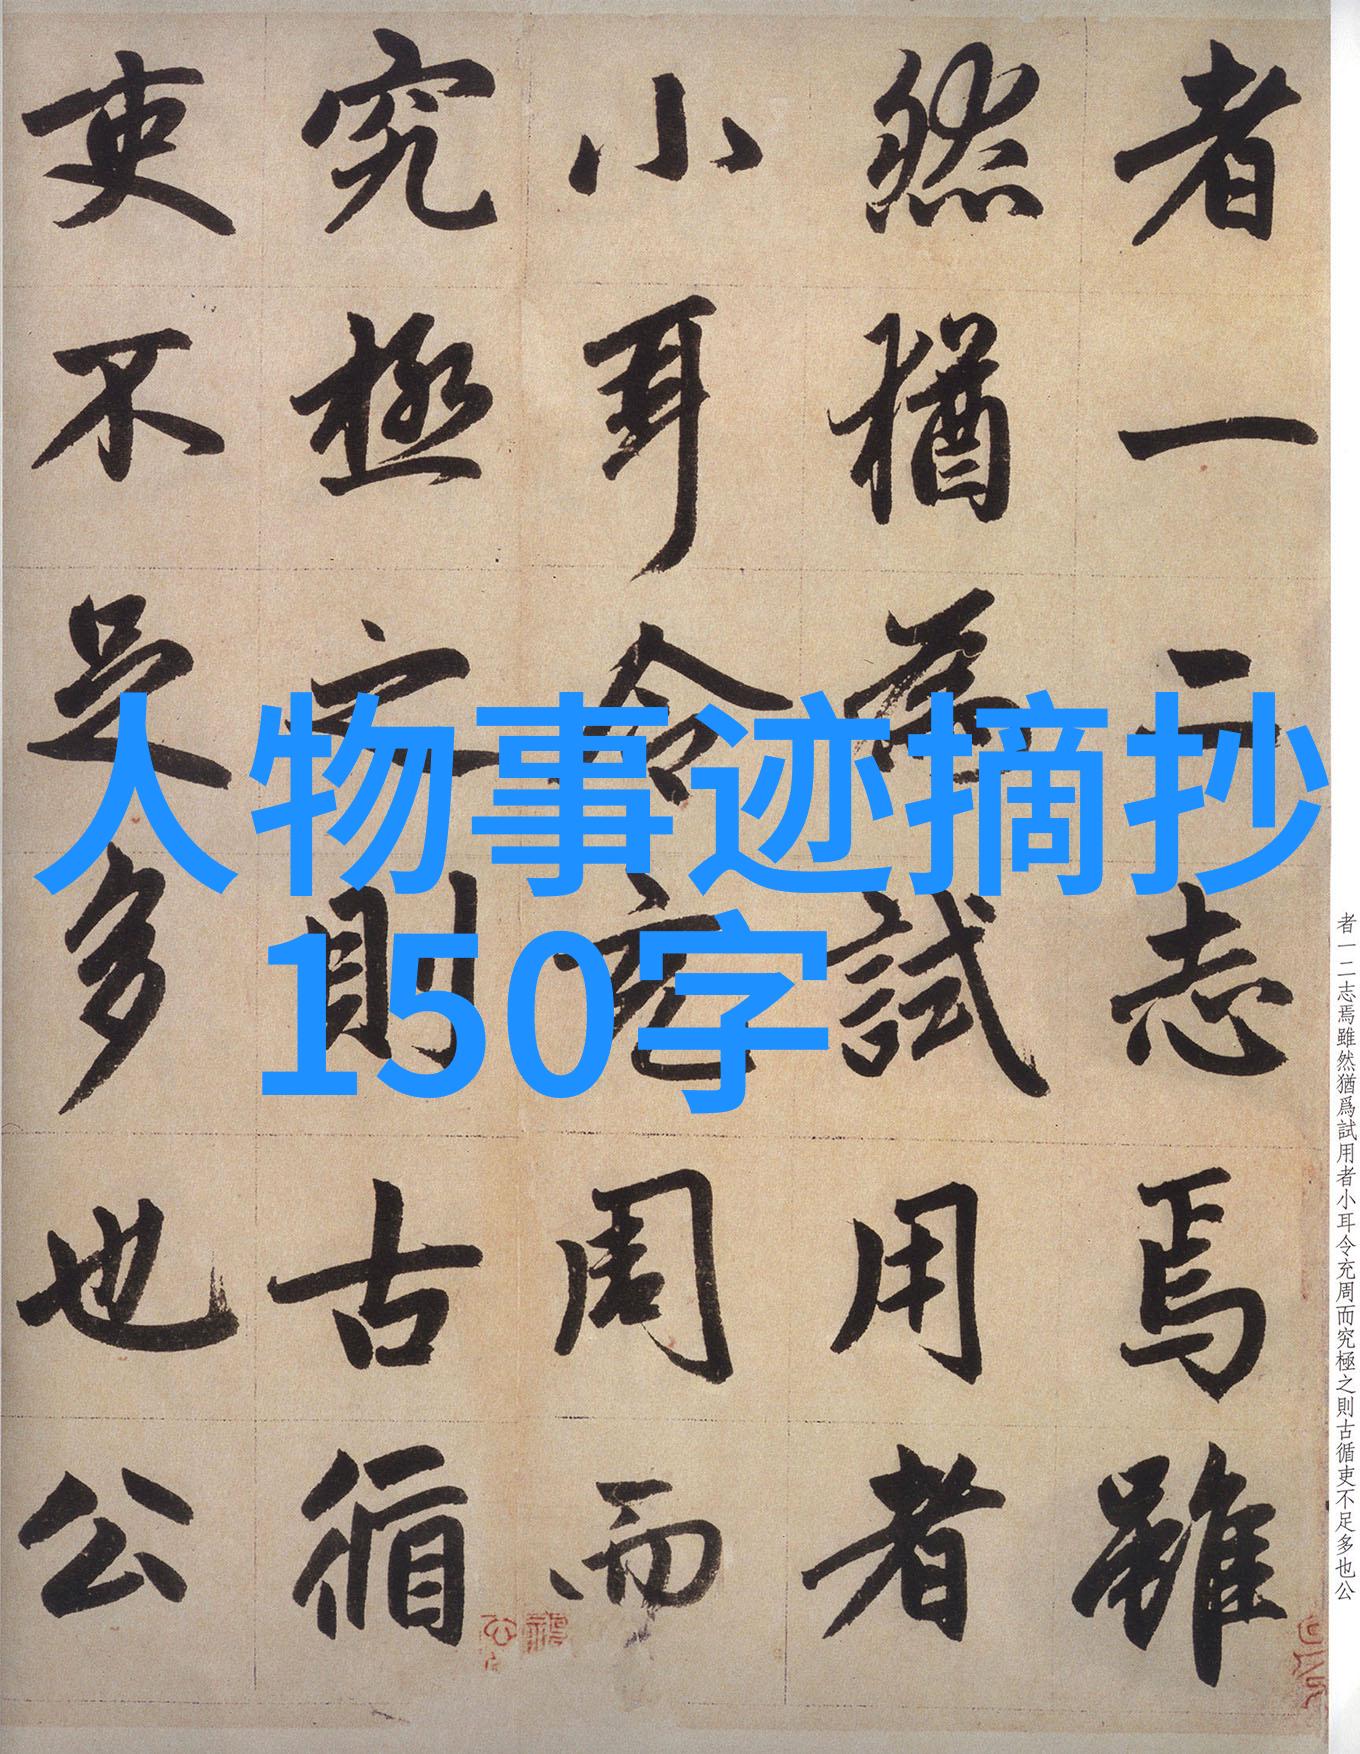 者一二志焉雖
然猶為試用者
小耳令充周而
究極之則古循
吏不足多也公
人物事迹摘抄
150字
者一二志焉雖然猶爲試用者小耳令充周而究極之則古循吏不足多也公